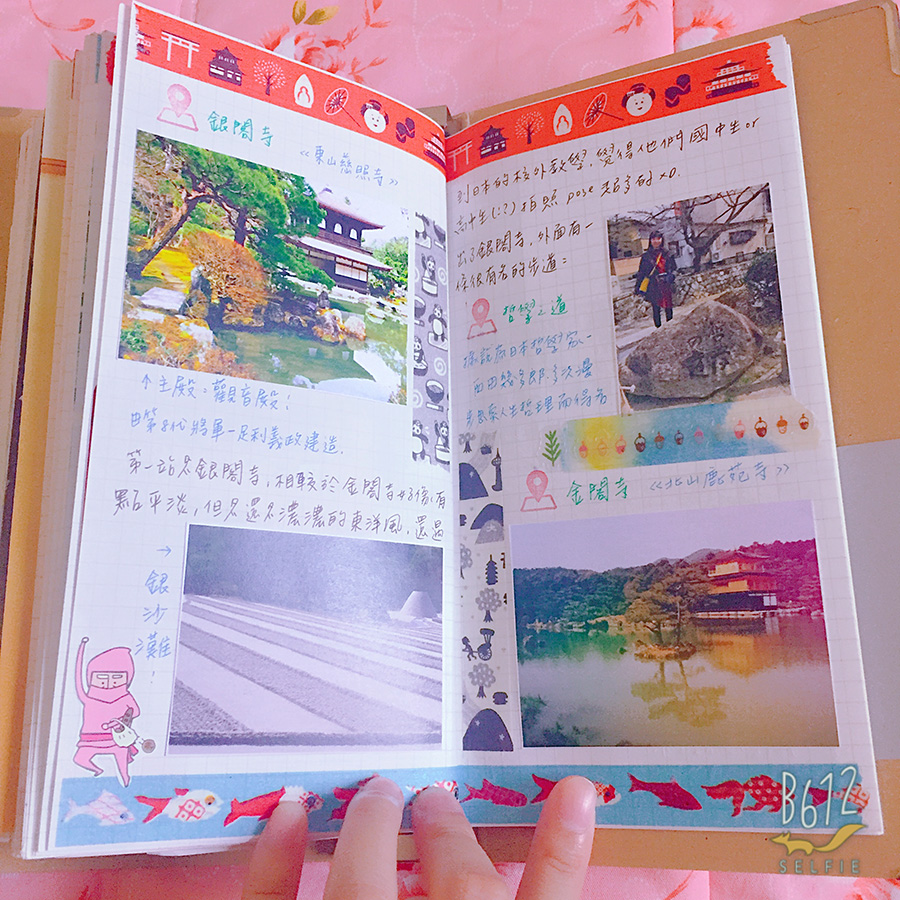 銀閣寺
《東山慈照寺》
↑主殿。觀音殿!
由第8代將軍一足利義政建造.
第一站名銀閣寺,相較於金閣寺好像有
點平淡,但名還名濃濃的東洋風,還遇
→
銀
沙
灘
!
到日本的校外教學,覺得他們國中生or
高中生(:?)拍照 pose 超多的XD.
出了銀閣寺,外面有一
條很有名的步道:
哲學之道
據說為日本哲學家一
西田幾多郎多次漫
步思索人生哲理而得名
金閣寺
《北山鹿苑寺》
B612
SELFIE